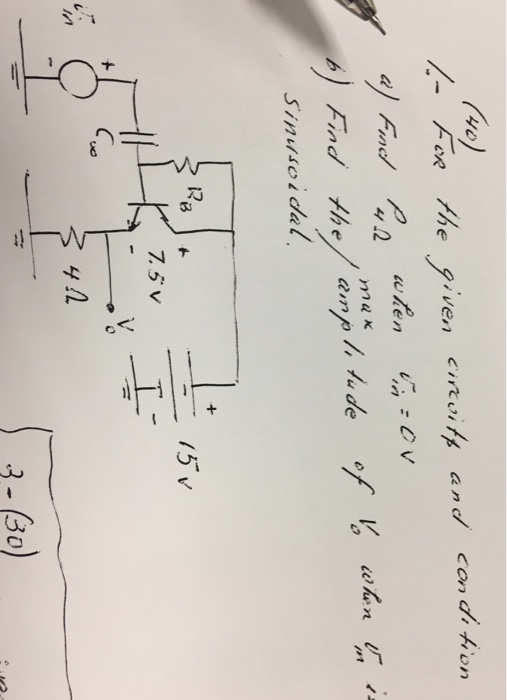 (40)
1.- For the given circuits and condition
a) Find P4Ω when vin = 0V
b) Find the max amplitude of Vo when vin is
sinusoidal.
+
15V
-
RB
+
7.5V
-
C∞
Vo
4Ω
+
vin
-
3-(30)